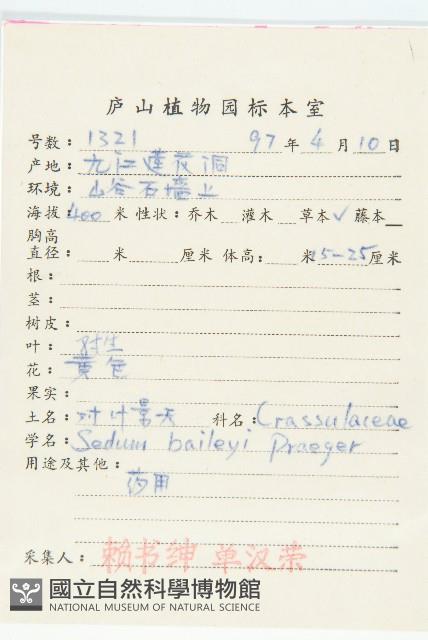 庐山植物园标本室
号数：1321 97年4月10日
产地：九江莲花洞
环境：山谷石墙上
海拔：400米 性状：乔木 灌木 草本✓ 藤本
胸高
直径： 米 厘米 体高： 米15-25厘米
根：
茎：
树皮：
叶：对生
花：黄色
果实：
土名：对叶景天 科名：Crassulaceae
学名：Sedum baileyi Praeger
用途及其他：
药用
采集人：赖书绅 单汉荣
國立自然科學博物館
NATIONAL MUSEUM OF NATURAL SCIENCE